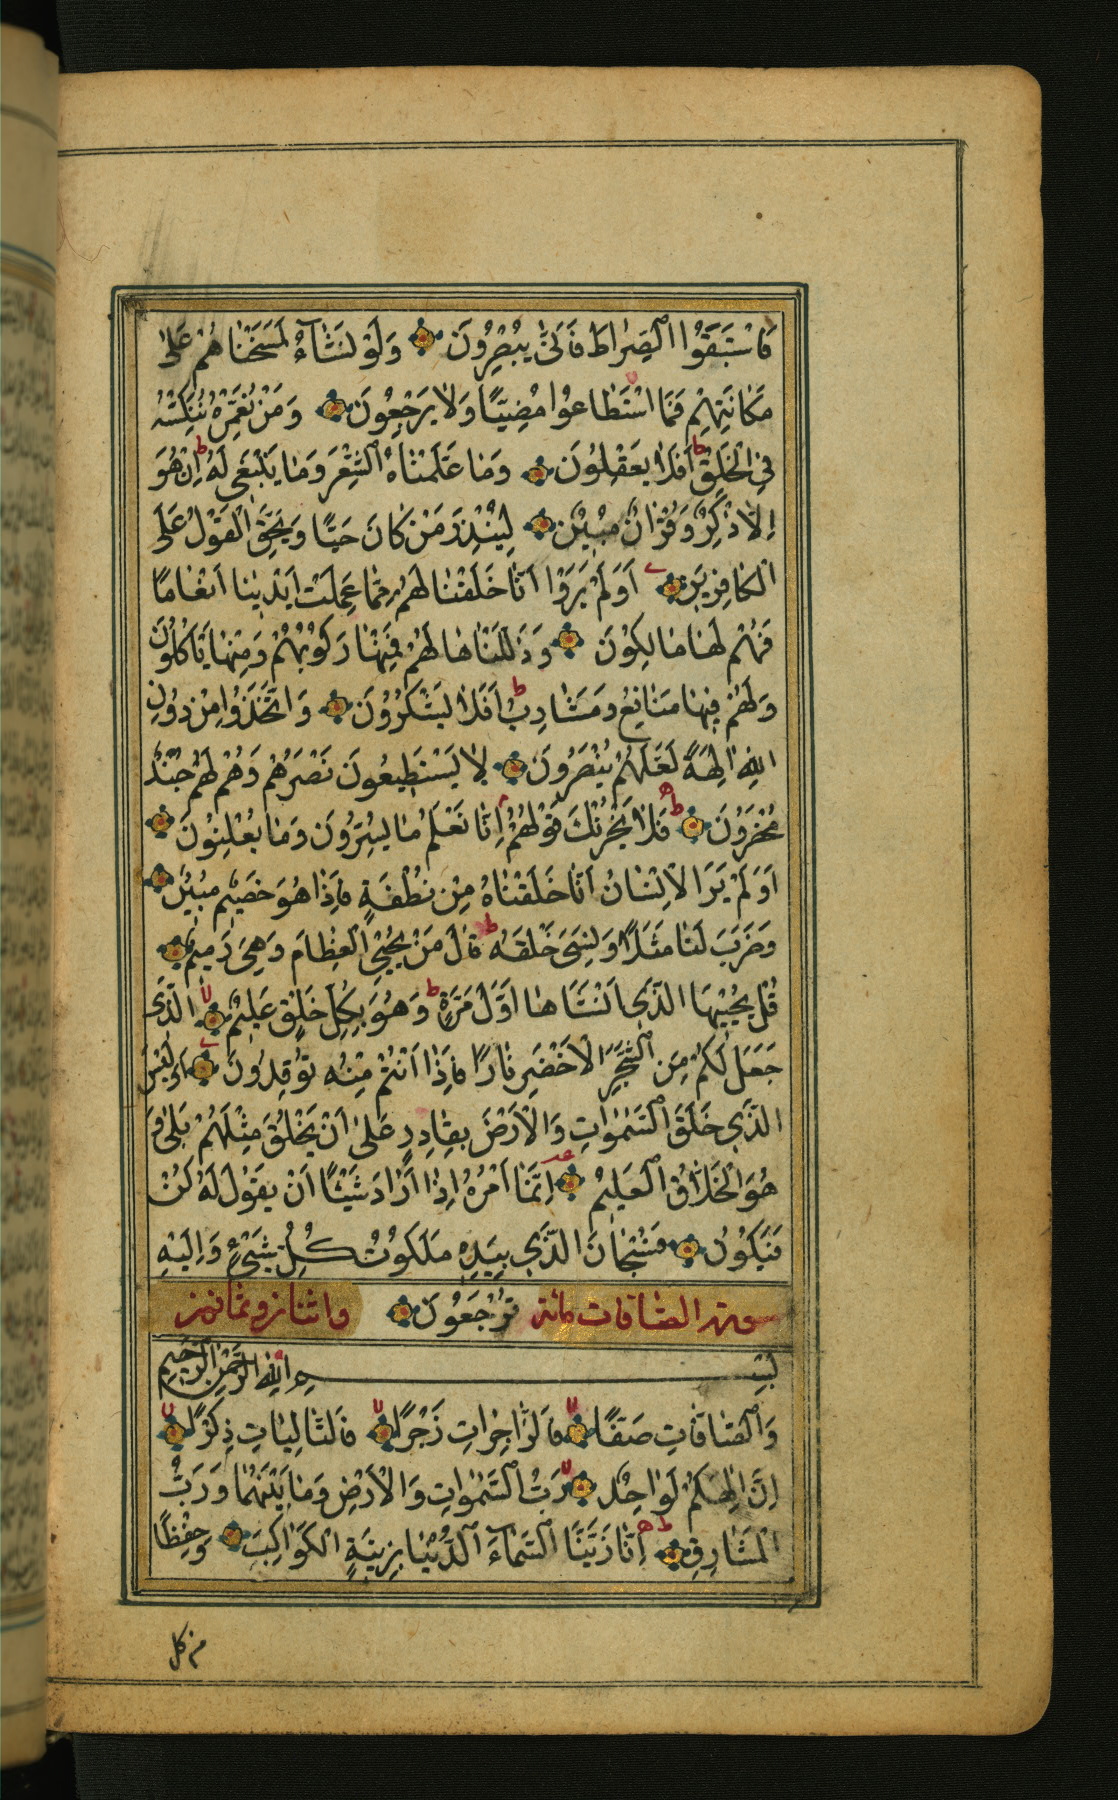 فَاسْتَبَقُوا الصِّرٰاطَ فَاَنّٰى يُبْصِرُونَ وَلَوْ نَشَاۤءُ لَمَسَخْنَاهُمْ عَلىٰ
مَكٰانَتِهِمْ فَمَا اسْتَطٰاعُوا مُضِيًّا وَلاٰ يَرْجِعُونَ وَمَنْ نُعَمِّرْهُ نُنَكِّسْهُ
فِي الْخَلْقِ اَفَلاٰ يَعْقِلُونَ وَمٰا عَلَّمْنٰاهُ الشِّعْرَ وَمٰا يَنْبَغي لَهُ اِنْ هُوَ
اِلاّٰ ذِكْرٌ وَقُرْاٰنٌ مُبيٖنٌ لِيُنْذِرَ مَنْ كٰانَ حَيًّا وَيَحِقَّ الْقَوْلُ عَلَى
الْكٰافِرِينَ اَوَلَمْ يَرَوْا اَنّٰا خَلَقْنٰا لَهُمْ مِمّٰا عَمِلَتْ اَيْديٖنٰا اَنْعٰامًا
فَهُمْ لَهٰا مٰالِكُونَ وَذَلَّلْنٰاهٰا لَهُمْ فَمِنْهٰا رَكُوبُهُمْ وَمِنْهٰا يَأْكُلُونَ
وَلَهُمْ فِيهٰا مَنٰافِعُ وَمَشٰارِبُ اَفَلاٰ يَشْكُرُونَ وَاتَّخَذُوا مِنْ دُونِ
اللّٰهِ اٰلِهَةً لَعَلَّهُمْ يُنْصَرُونَ لاٰ يَسْتَطِيعُونَ نَصْرَهُمْ وَهُمْ لَهُمْ جُنْدٌ
مُحْضَرُونَ فَلاٰ يَحْزُنْكَ قَوْلُهُمْ اِنّٰا نَعْلَمُ مٰا يُسِرُّونَ وَمٰا يُعْلِنُونَ
اَوَلَمْ يَرَ الْاِنْسٰانُ اَنّٰا خَلَقْنٰاهُ مِنْ نُطْفَةٍ فَاِذٰا هُوَ خَصيٖمٌ مُبيٖنٌ
وَضَرَبَ لَنٰا مَثَلاً وَنَسِيَ خَلْقَهُ قٰالَ مَنْ يُحْيِي الْعِظٰامَ وَهِيَ رَميٖمٌ
قُلْ يُحْيِيهَا الَّذي اَنْشَاَهٰا اَوَّلَ مَرَّةٍ وَهُوَ بِكُلِّ خَلْقٍ عَليٖمٌ الَّذي
جَعَلَ لَكُمْ مِنَ الشَّجَرِ الْاَخْضَرِ نٰارًا فَاِذٰا اَنْتُمْ مِنْهُ تُوقِدُونَ اَوَلَيْسَ
الَّذي خَلَقَ السَّمٰوٰاتِ وَالْاَرْضَ بِقٰادِرٍ عَلىٰ اَنْ يَخْلُقَ مِثْلَهُمْ بَلىٰ وَ
هُوَ الْخَلاّٰقُ الْعَليٖمُ اِنَّمٰا اَمْرُهُ اِذٰا اَرٰادَ شَيْئًا اَنْ يَقُولَ لَهُ كُنْ
فَيَكُونُ فَسُبْحٰانَ الَّذي بِيَدِهِ مَلَكُوتُ كُلِّ شَيْءٍ وَاِلَيْهِ
سورة الصافات مائة تُرْجَعُونَ واثنان وثمانون
بِسْمِ اللّٰهِ الرَّحْمٰنِ الرَّحيٖمِ
وَالصّٰافّٰاتِ صَفًّا فَالزّٰاجِرٰاتِ زَجْرًا فَالتّٰالِيٰاتِ ذِكْرًا
اِنَّ اِلٰهَكُمْ لَوٰاحِدٌ رَبُّ السَّمٰوٰاتِ وَالْاَرْضِ وَمٰا بَيْنَهُمٰا وَرَبُّ
الْمَشٰارِقِ اِنّٰا زَيَّنَّا السَّمٰاۤءَ الدُّنْيٰا بِزيٖنَةٍ الْكَوٰاكِبِ وَحِفْظًا
من كل